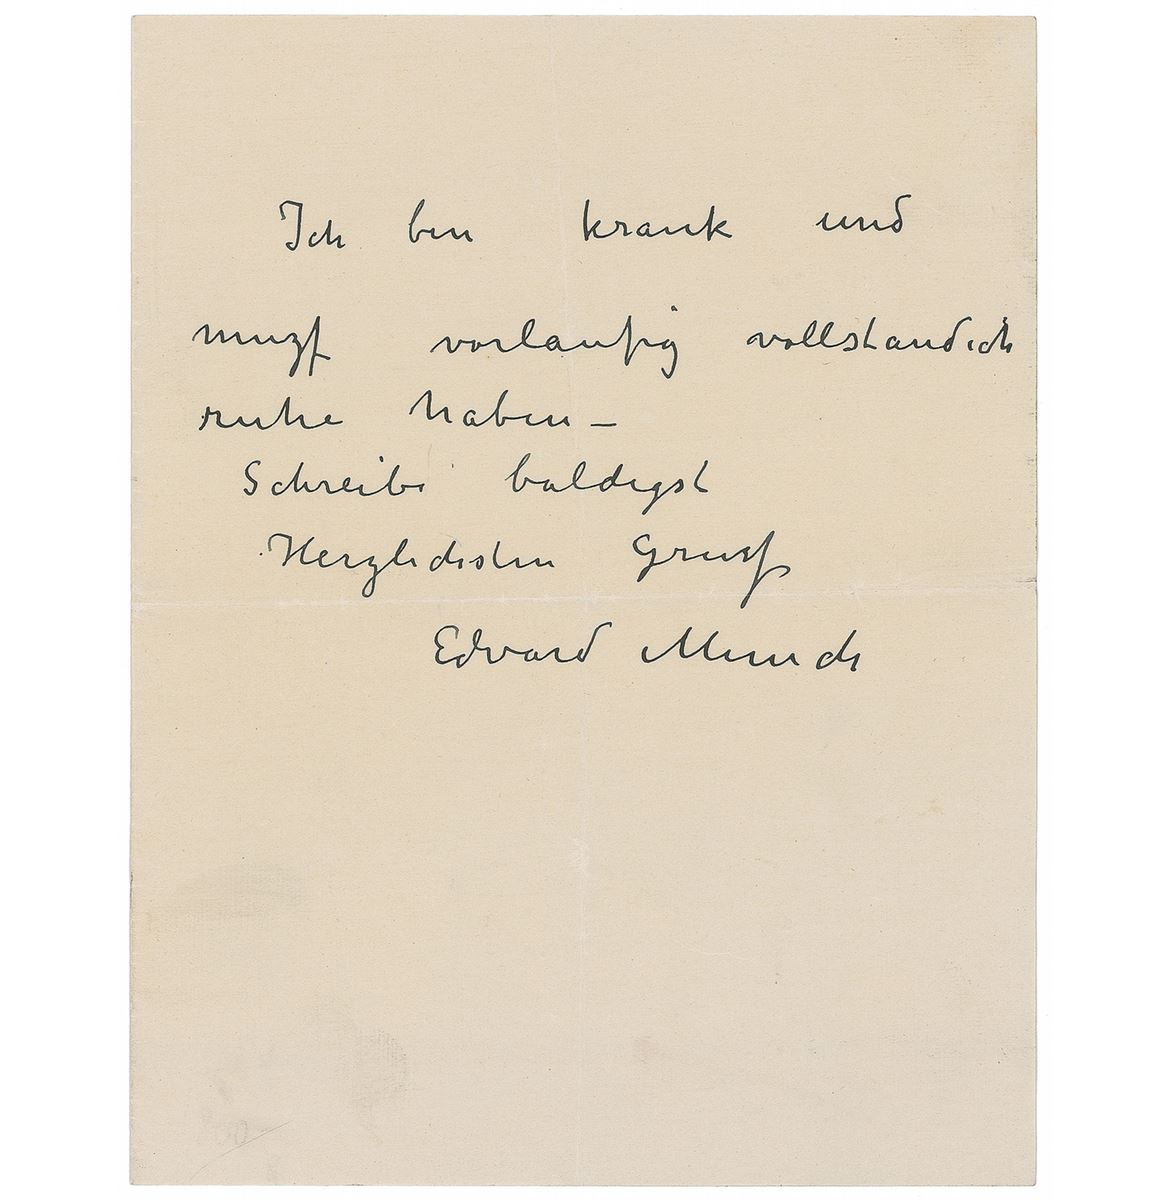 Ich bin krank und
muß vorlaufig vollstandich
ruhe haben –
Schreibe baldigst
Herzlichsten Gruß
Edvard Munch